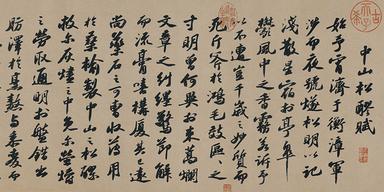 中山松醪賦
始予宵濟於衡漳軍
涉而夜號燧松明以記
淺散星宿於亭皋
鬱風中之香霧若訴予
以不遭豈千歲之妙質而
死斤斧於鴻毛效區區之
寸明曾何異於束蒿爛
文章之糾纏驚節解
而流膏嘻構廈其已遠
尚藥石之可曹收薄用
於桑榆製中山之松醪
救爾灰燼之中免爾螢爝
之勞取通明於盤錯出
肪澤於烹熬與黍麥而